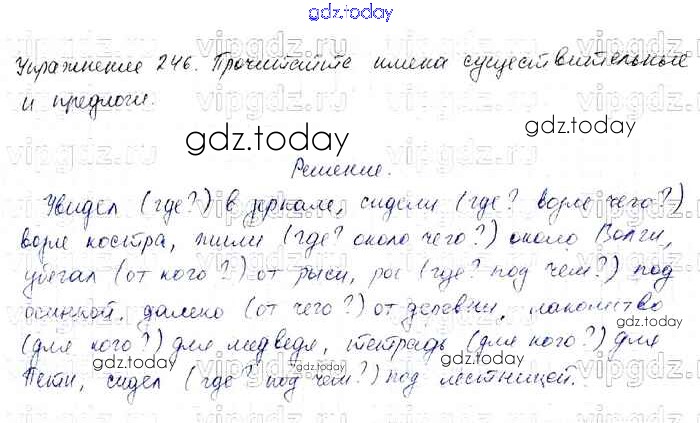 gdz.today
Упражнение 246. Прочитайте имена существительные
и предлоги.
gdz.today
gdz.today
Решение.
Увидел (где?) в зеркале, сидели (где? возле чего?)
возле костра, жили (где? около чего?) около Волги,
убегал (от кого?) от рыси, рос (где? под чем?) под
осинкой, далеко (от чего?) от деревни, лакомство
(для кого?) для медведя, тетрадь (для кого?) для
Пети, сидел (где? под чем?) под лестницей.
gdz.today
gdz.today
gdz.today
gdz.today